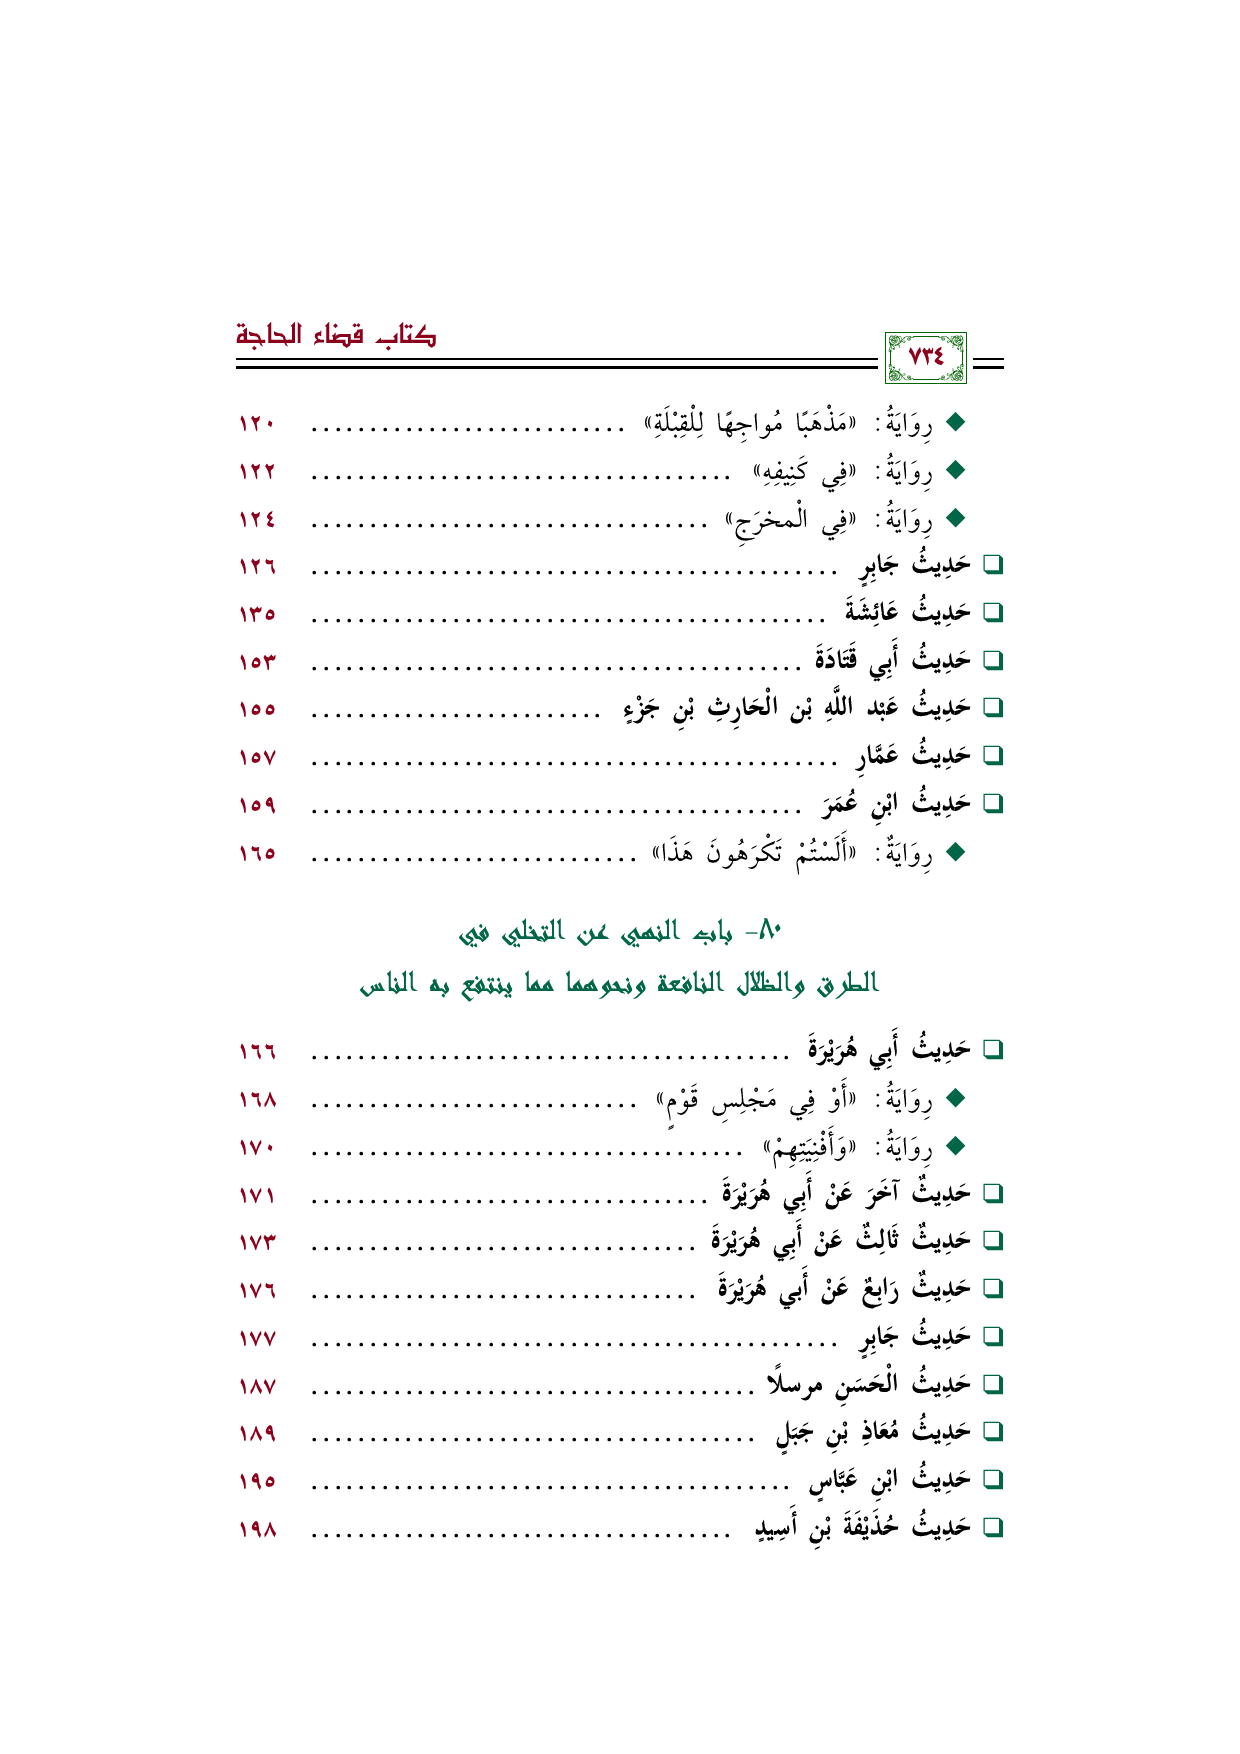 كتاب قضاء الحاجة
٧٣٤
◆ رِوَايَةُ: «مَذْهَبًا مُواجِهًا لِلْقِبْلَةِ» ........................... ١٢٠
◆ رِوَايَةُ: «فِي كَنِيفِهِ» .................................... ١٢٢
◆ رِوَايَةُ: «فِي الْمخرَجِ» .................................. ١٢٤
❑ حَدِيثُ جَابِرٍ ............................................. ١٢٦
❑ حَدِيثُ عَائِشَةَ ............................................ ١٣٥
❑ حَدِيثُ أَبِي قَتَادَةَ .......................................... ١٥٣
❑ حَدِيثُ عَبْد اللَّهِ بْن الْحَارِثِ بْنِ جَزْءٍ ......................... ١٥٥
❑ حَدِيثُ عَمَّارِ ............................................. ١٥٧
❑ حَدِيثُ ابْنِ عُمَرَ .......................................... ١٥٩
◆ رِوَايَةٌ: «أَلَسْتُمْ تَكْرَهُونَ هَذَا» ............................ ١٦٥
٨٠- باب النهي عن التخلي في
الطرق والظلال النافعة ونحوهما مما ينتفع به الناس
❑ حَدِيثُ أَبِي هُرَيْرَةَ ......................................... ١٦٦
◆ رِوَايَةُ: «أَوْ فِي مَجْلِسِ قَوْمٍ» ............................ ١٦٨
◆ رِوَايَةُ: «وَأَفْنِيَتِهِمْ» ..................................... ١٧٠
❑ حَدِيثٌ آخَرَ عَنْ أَبِي هُرَيْرَةَ .................................. ١٧١
❑ حَدِيثٌ ثَالِثٌ عَنْ أَبِي هُرَيْرَةَ ................................. ١٧٣
❑ حَدِيثٌ رَابِعٌ عَنْ أَبي هُرَيْرَةَ ................................. ١٧٦
❑ حَدِيثُ جَابِرٍ ............................................. ١٧٧
❑ حَدِيثُ الْحَسَنِ مرسلًا ...................................... ١٨٧
❑ حَدِيثُ مُعَاذِ بْنِ جَبَلٍ ...................................... ١٨٩
❑ حَدِيثُ ابْنِ عَبَّاسٍ ......................................... ١٩٥
❑ حَدِيثُ حُذَيْفَةَ بْنِ أَسِيدٍ .................................... ١٩٨